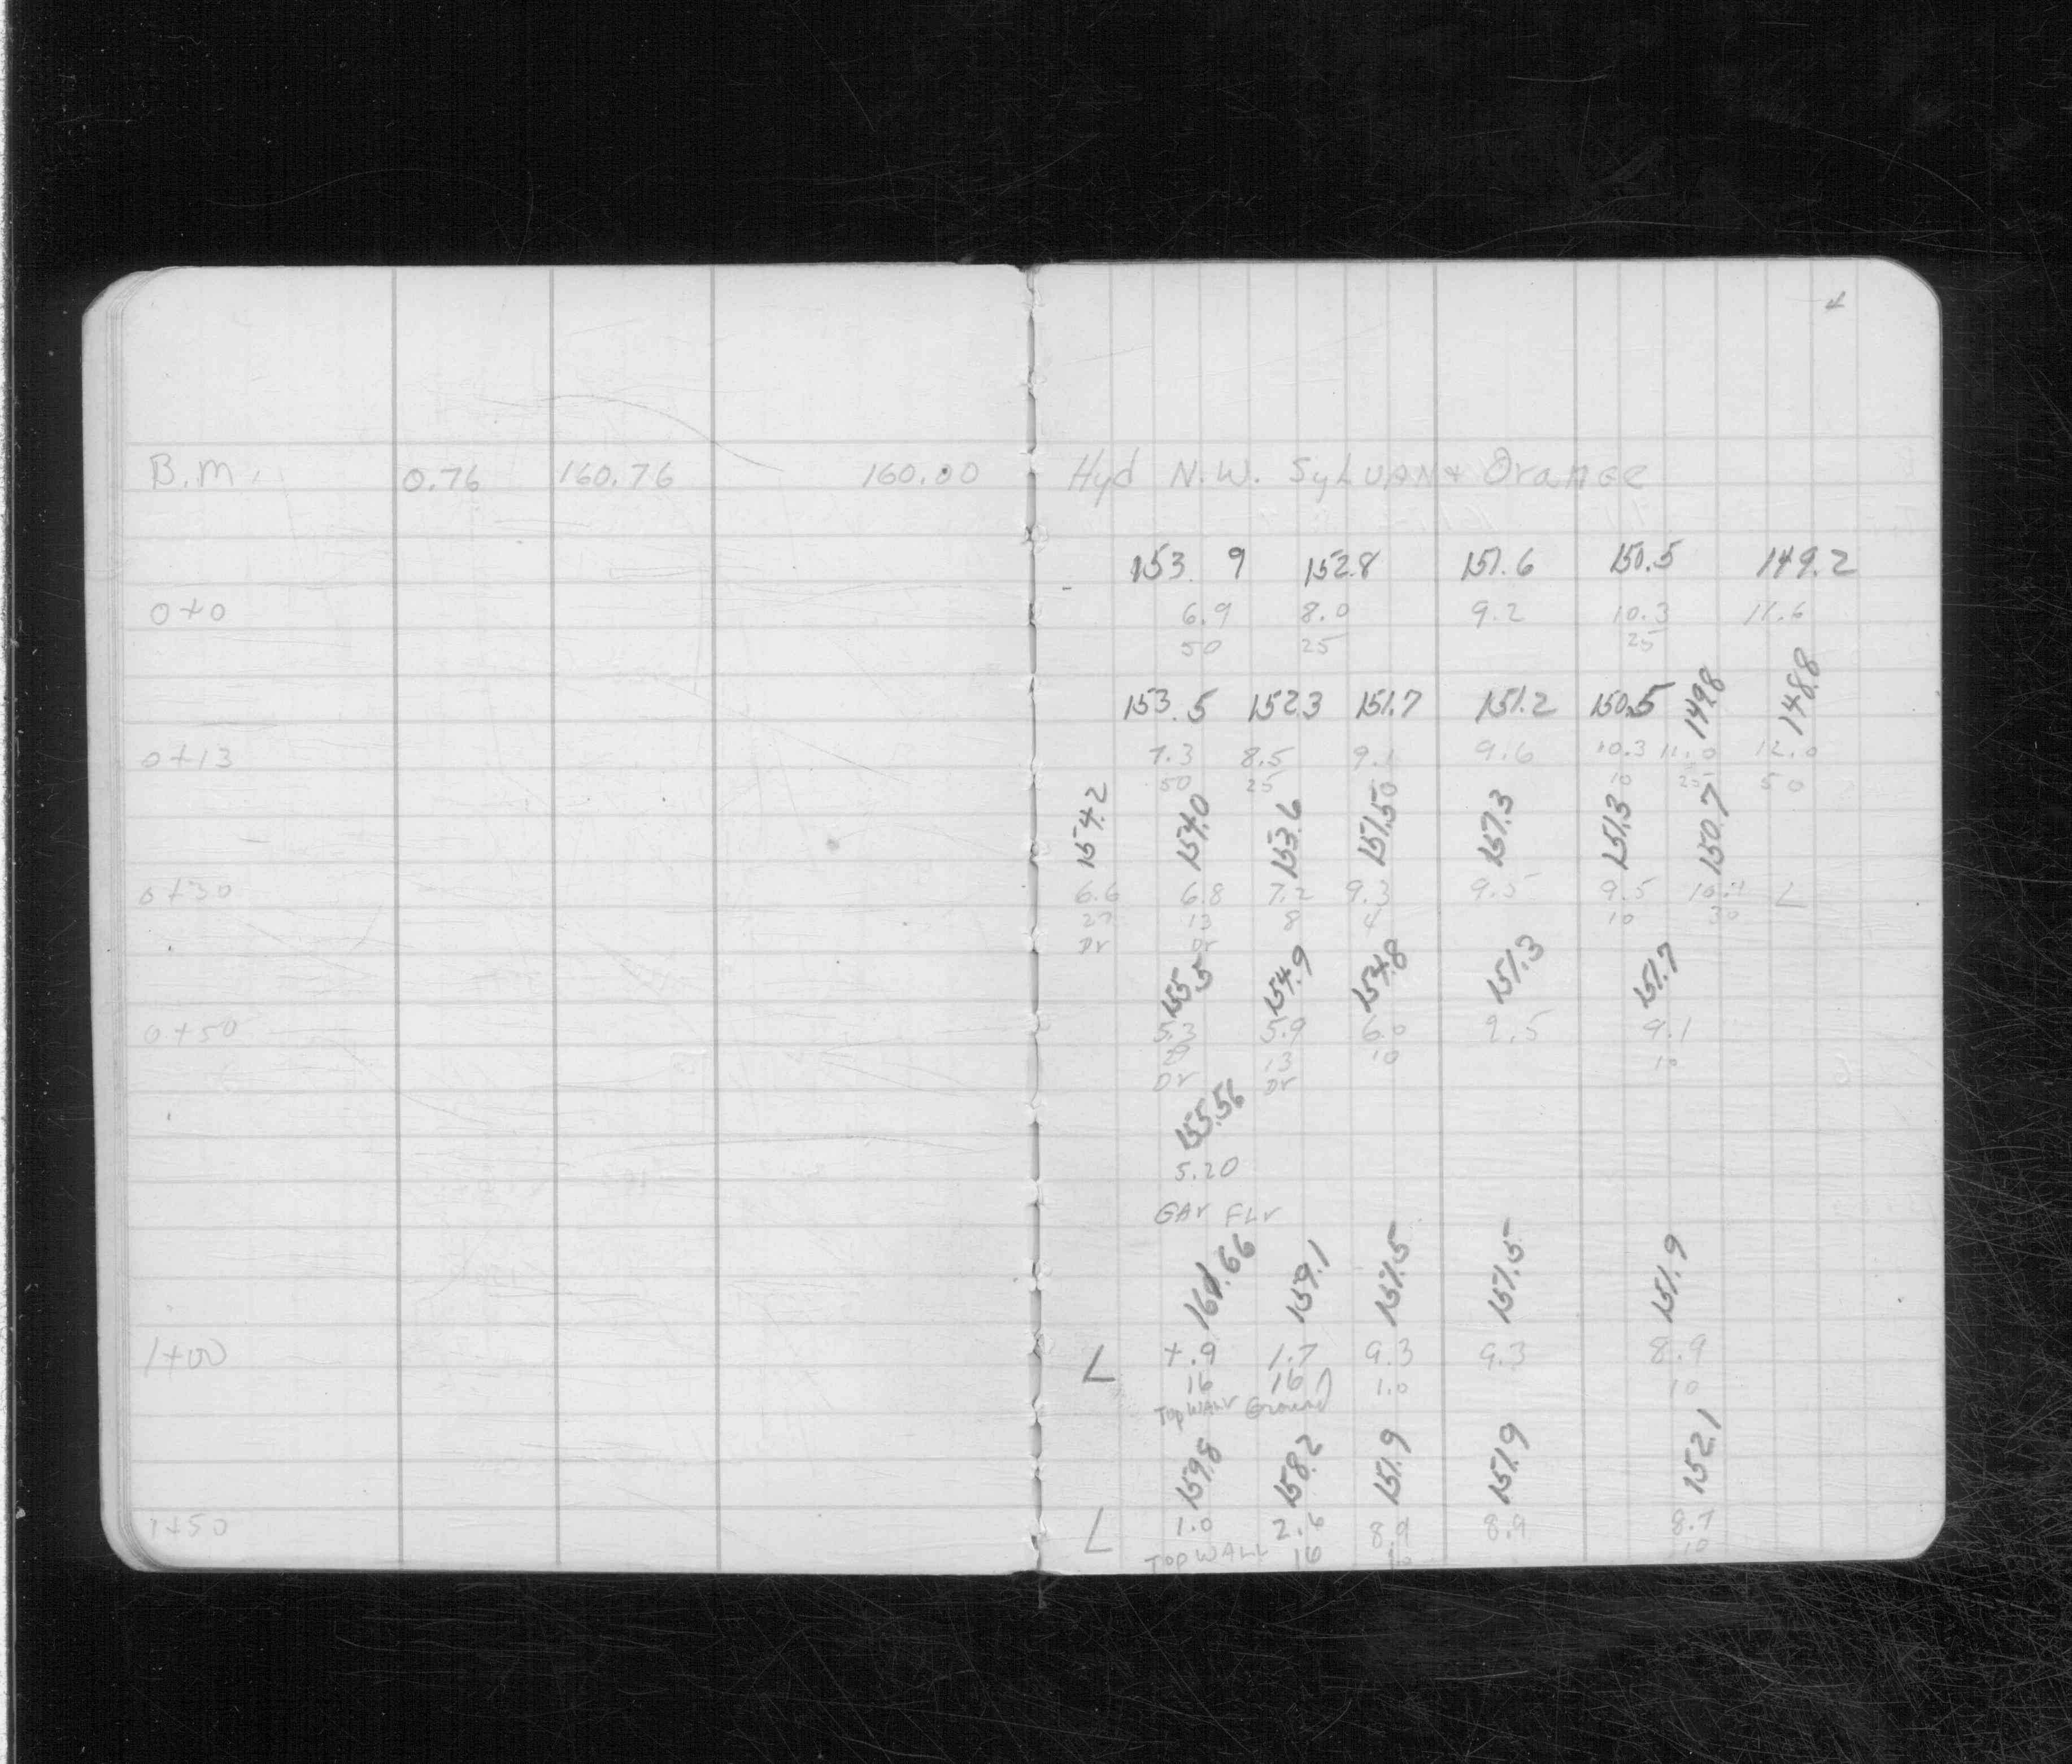 4
B.M. 0.76 160.76 160.00 Hyd N.W. Sylvan & Orange
153.9 152.8 151.6 150.5 149.2
0+0 6.9 8.0 9.2 10.3 11.6
50 25 25
153.5 152.3 151.7 151.2 150.5 149.8 148.8
0+13 7.3 8.5 9.1 9.6 10.3 11.0 12.0
50 25 10 25 50
154.2 154.0 153.6 151.50 151.3 151.3 150.7
0+30 6.6 6.8 7.2 9.3 9.5 9.5 10.1 L
27 13 8 4 10 30
Dr Dr
155.5 154.9 154.8 151.3 151.7
0+50 5.3 5.9 6.0 9.5 9.1
13 10 10
Dr Dr
155.56
5.20
GAr FLr
161.66 159.1 151.5 151.5 151.9
1+00 L +.9 1.7 9.3 9.3 8.9
16 16 10 10
Top WALL Ground
159.8 158.2 151.9 151.9 152.1
1+50 L 1.0 2.6 8.9 8.9 8.7
Top WALL 16 10 10